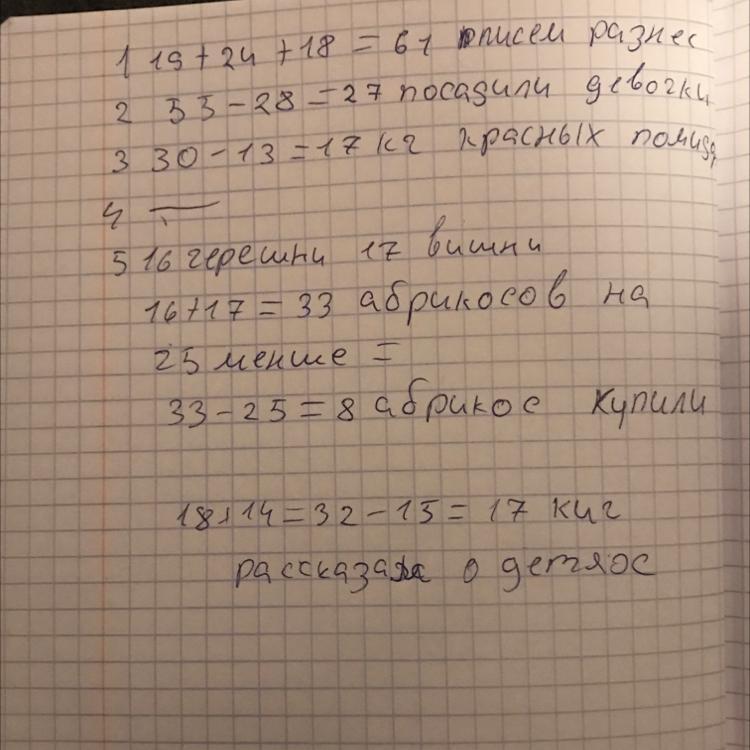 1 19+24+18=61 писем разнес
2 55-28=27 посадили девочки
3 30-13=17 кг красных помид
4 —
5 16 черешни 17 вишни
16+17=33 абрикосов на
25 менше =
33-25=8 абрикос купили
18+14=32-15=17 книг
рассказах о